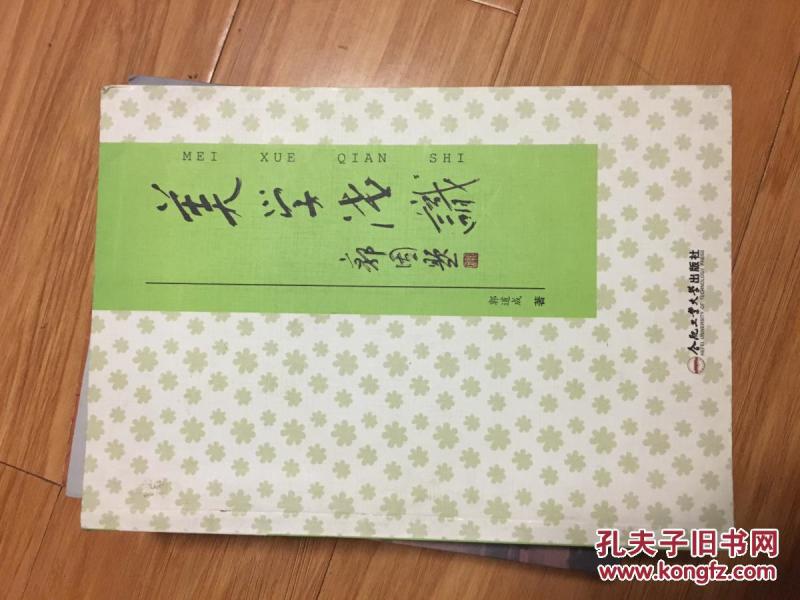 MEI XUE QIAN SHI
美学浅識
郭因题
郭道成 著
合肥工业大学出版社
HEFEI UNIVERSITY OF TECHNOLOGY PRESS
孔夫子旧书网
www.kongfz.com